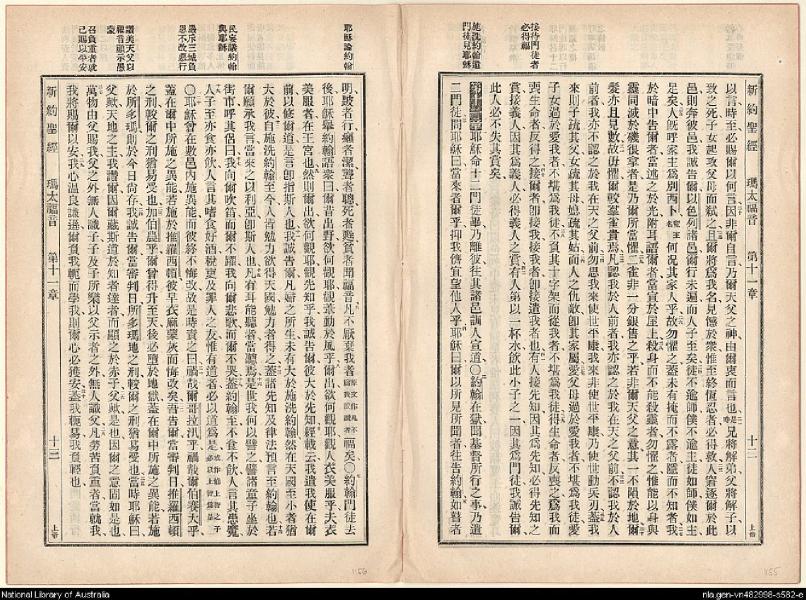 新約聖經 瑪太福音 第十一章 十二 上帝
接待門徒者
必得福
施洗約翰遣
門徒見耶穌
以言時至必賜爾以何言因非爾自言乃爾天父之神由爾衷而言也兄將解弟父將解子以
致之死子女起攻父母而弑之且爾將爲我名見憾於衆惟至終恆忍者必得救人窘逐爾於此
邑則奔彼邑我誠告爾以色列諸邑爾行未遍而人子至矣徒不逾師僕不逾主徒如師僕如主
足矣人既呼家主爲別西卜何况其家人乎故勿懼之蓋未有掩而不露者隱而不知者我
於暗中告爾者當述之於光附耳語爾者當宣於屋上殺身而不能殺靈者勿懼之惟能以身與
靈同滅於磯很拿者是乃爾所當懼二雀非一分銀售之乎若非爾天父之意其一不隕於地爾
髮亦且見數故毋懼爾較羣雀貴焉凡認我於人前者我亦認之於我在天之父前不認我於人
前者我亦不認之於我在天之父前勿思我來使世平康我來非使世平康乃使世動兵刃蓋我
來則子疏其父女疏其母媳疏其姑而人之仇敵卽其家屬愛父母過於愛我者不堪爲我徒愛
子女過於愛我者不堪爲我徒不負其十字架而從我者不堪爲我徒得生命者反喪之爲我而
喪生命者反得之接爾者卽接我接我者卽接遣我者也有人接先知因其爲先知必得先知之
賞接義人因其爲義人必得義人之賞有人第以一杯水飲此小子之一因其爲門徒我誠告爾
此人必不失其賞矣
第十一章耶穌命十二門徒畢乃離彼往其諸邑訓人宣道〇約翰在獄聞基督所行之事乃遣
二門徒問耶穌曰當來者爾乎抑我儕宜望他人乎耶穌曰爾以所見所聞者往告約翰如瞽者
耶穌論約翰
民妄議約翰
與耶穌
嚴斥三城負
恩不改惡行
讚美天父以
福音顯示愚
蒙
召負重者就
己賜以平安
明跛者行癩者潔聾者聽死者甦貧者聞福音凡不厭棄我者福矣〇約翰門徒去
後耶穌舉約翰語衆曰爾昔出野欲何觀耶觀葦動於風乎爾出欲何觀耶觀人衣美服乎夫衣
美服者在王宮也然則爾出欲何觀耶觀先知乎我誠告爾彼大於先知經載云我遣我使在爾
前以修爾道是言卽指斯人也我誠告爾凡婦之所生未有大於施洗約翰然在天國至小者猶
大於彼自施洗約翰至今人皆勉力欲得天國勉力者得之蓋諸先知及律法預言至約翰也若
爾願承我言當來之以利亞卽斯人也凡有耳能聽者當聽焉是世我何以譬之譬諸童子坐於
街市呼其侶曰我向爾吹笛而爾不躍我向爾悲歌而爾不哭蓋約翰至不食不飲人言其患魔
人子至亦食亦飲人言其嗜食好酒稅吏及罪人之友惟有道者必以道爲是
〇耶穌曾在數邑內施異能而彼終不悔改故是時責之曰禍哉爾哥拉汛乎禍哉爾伯賽大乎
蓋在爾中所施之異能若施於推羅西頓彼早衣麻蒙灰而悔改矣吾告爾當審判日推羅西頓
之刑較爾之刑猶易受也加伯農乎爾曾得升至天後必墮於地獄蓋在爾中所施之異能若施
於所多瑪則於今日尚存我誠告爾當審判日所多瑪地之刑較爾之刑猶易受也當時耶穌曰
父歟天地之主我讚爾因爾藏斯道於知者達者而顯之於赤子父歟是也因爾之意固如是也
萬物由父賜我父之外無人識子子及子所樂以父示者之外無人識父凡勞苦負重者當就我
我將賜爾以安我心温良謙遜爾負我軛而學我則爾心必獲安蓋我軛易我負輕也
新約聖經 瑪太福音 第十一章 十三 上帝
155
156
National Library of Australia
nla.gen-vn482998-s582-e